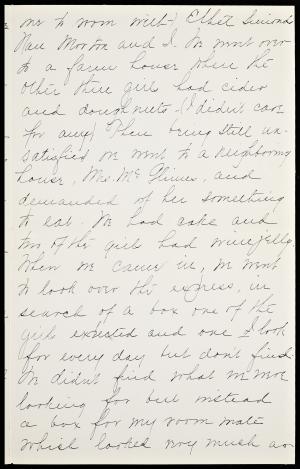 me to room with) Ethel Simonds
Nan Morton and I. We went over
to a farm house where the
other three girls had cider
and doughnuts (I didn't care
for any) Then being still un-
satisfied we went to a neighboring
house, Mrs. Mc and
demanded of her something
to eat. We had cake and
two of the girls had wine jelly.
When we came in, we went
to look over the express, in
search of a box one of the
girls expected and one I look
for every day but don't find.
We didn't find what we were
looking for but instead
a box for my room mate
which looked very much as